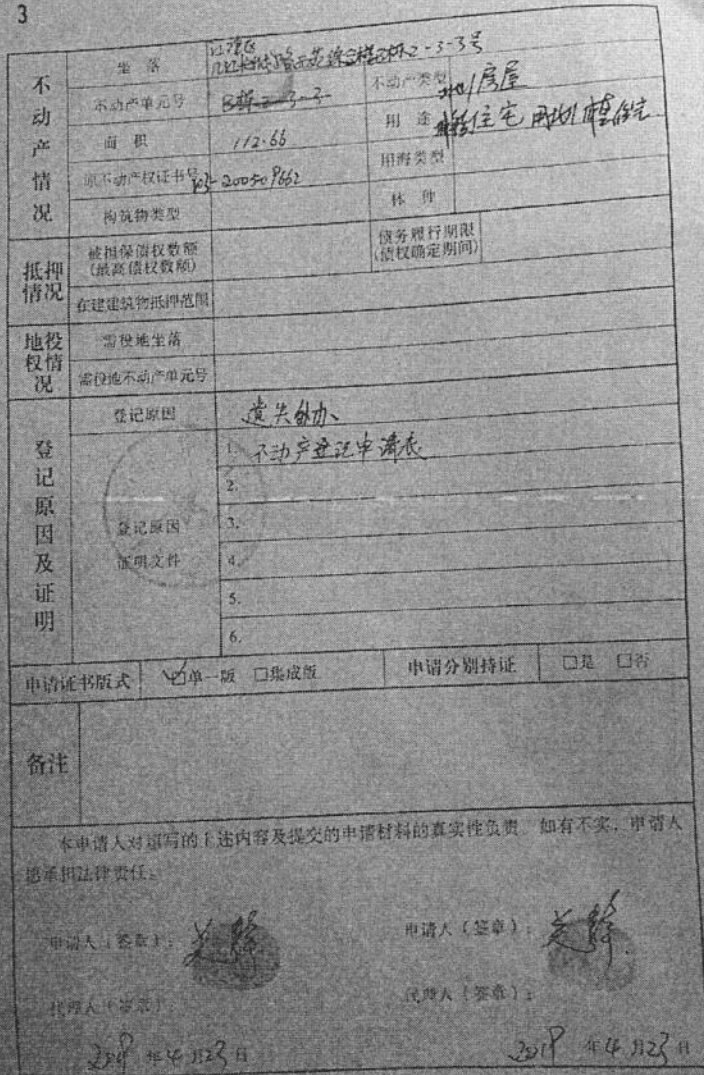 3
不动产情况
坐落 2-3-3号
不动产单元号 B栋2-3-3 不动产类型 土地/房屋
面积 112.66 用途 住宅
原不动产权证书号 103-200509662 用海类型
构筑物类型 林种
抵押情况
被担保债权数额(最高债权数额) 债务履行期限(债权确定期间)
在建建筑物抵押范围
地役权情况
需役地坐落
需役地不动产单元号
登记原因及证明
登记原因 遗失补办
登记原因证明文件
1. 不动产登记申请表
2.
3.
4.
5.
6.
申请证书版式 ☑单一版 □集成版 申请分别持证 □是 □否
备注
本申请人对填写的上述内容及提交的申请材料的真实性负责。如有不实,申请人
愿承担法律责任。
申请人(签章): 申请人(签章):
代理人(签章): 代理人(签章):
2019 年4月23日 2019 年4月23日